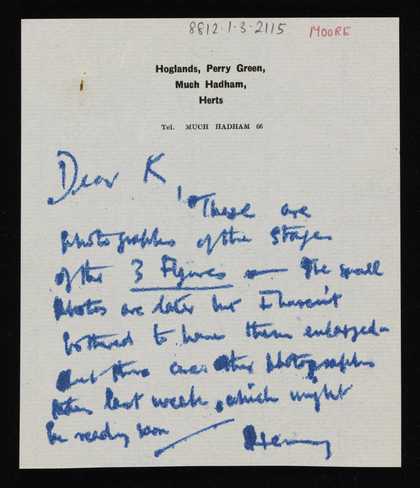 8812.1.3.2115 MOORE
Hoglands, Perry Green,
Much Hadham,
Herts
Tel. MUCH HADHAM 66
Dear K,
These are
photographs of the stages
of the 3 Figures — The small
photos are later but I haven't
bothered to have them enlarged –
but there are other photographs
taken last week, which might
be ready soon
Henry